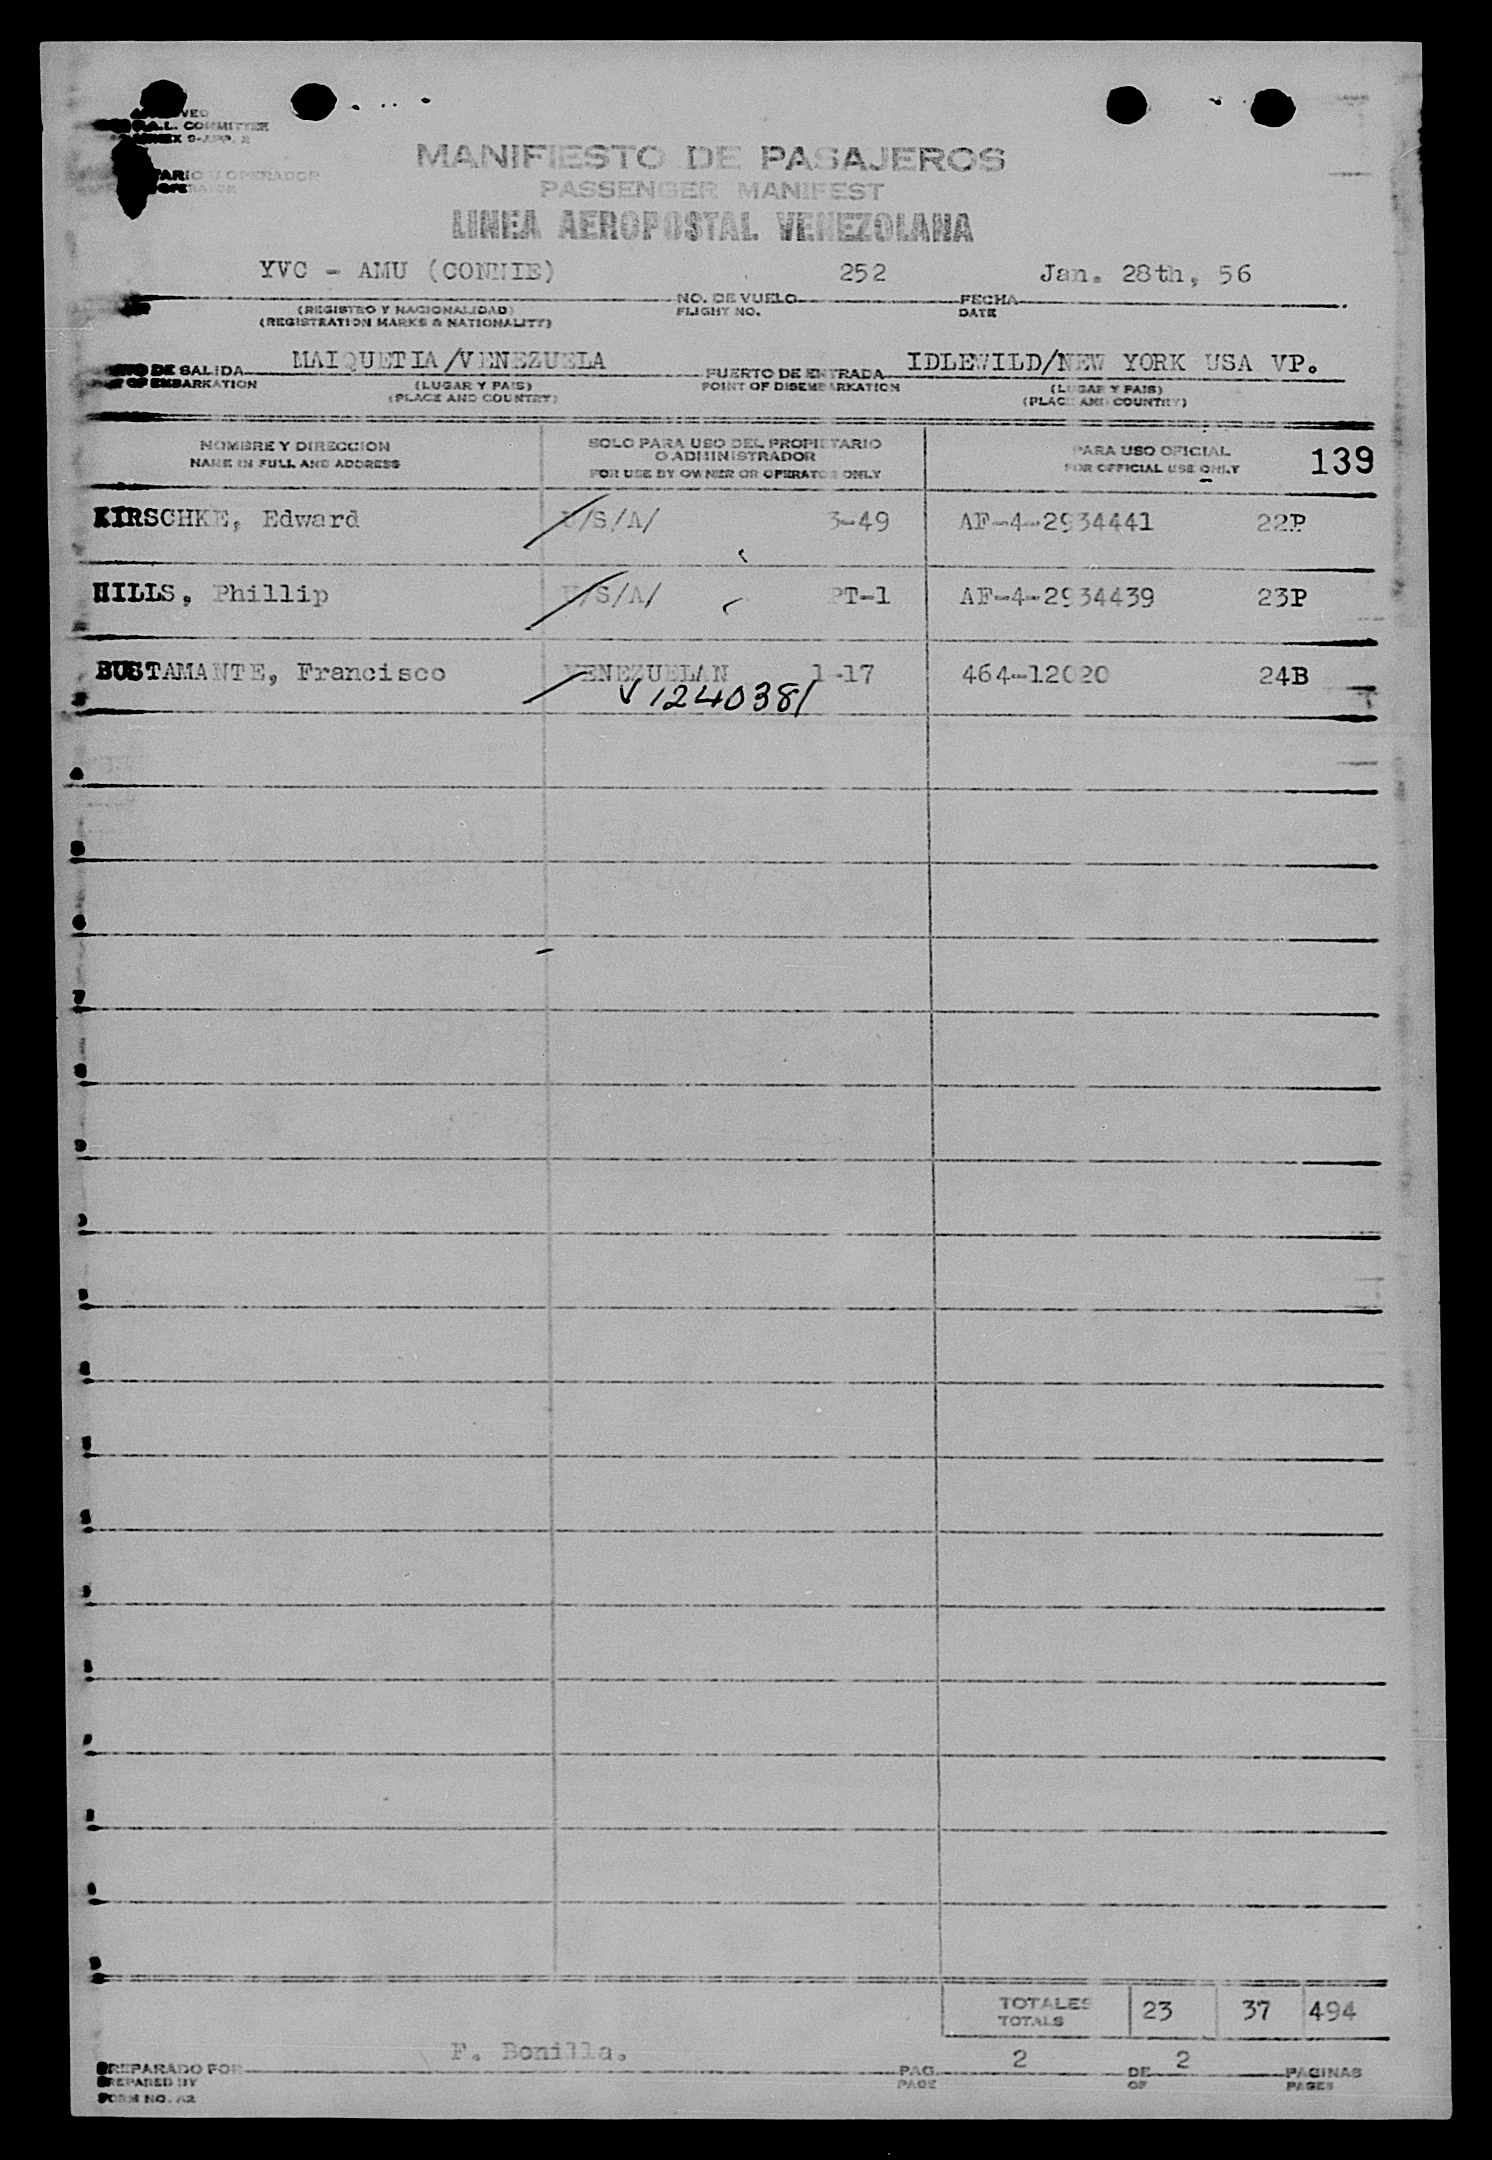 L. COMMITTEE
MANIFIESTO DE PASAJEROS
PASSENGER MANIFEST
LINEA AEROPOSTAL VENEZOLANA
YVC - AMU (CONNIE) 252 Jan. 28th, 56
NO. DE VUELO FECHA
(REGISTRO Y NACIONALIDAD) FLIGHT NO. DATE
(REGISTRATION MARKS & NATIONALITY)
MAIQUETIA/VENEZUELA IDLEWILD/NEW YORK USA VP.
DE SALIDA PUERTO DE ENTRADA
OF EMBARKATION (LUGAR Y PAIS) POINT OF DISEMBARKATION (LUGAR Y PAIS)
(PLACE AND COUNTRY) (PLACE AND COUNTRY)
NOMBRE Y DIRECCION SOLO PARA USO DEL PROPIETARIO PARA USO OFICIAL 139
NAME IN FULL AND ADDRESS O ADMINISTRADOR FOR OFFICIAL USE ONLY
FOR USE BY OWNER OR OPERATOR ONLY
KIRSCHKE, Edward U/S/A/ 3-49 AF-4-2934441 22P
HILLS, Phillip U/S/A/ PT-1 AF-4-2934439 23P
BUSTAMANTE, Francisco VENEZUELAN 1-17 464-12020 24B
V 1240381
4
5
6
7
TOTALES 23 37 494
TOTALS
F. Bonilla.
PREPARADO POR PAG. 2 DE 2 PAGINAS
PREPARED BY PAGE OF PAGES
FORM NO. A2